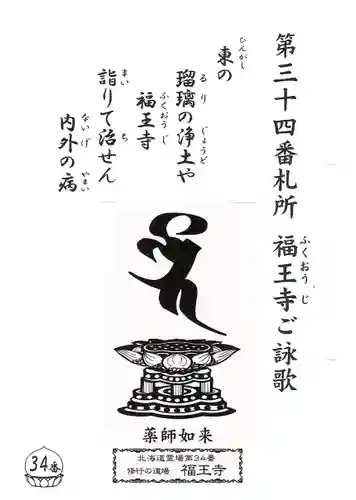 第三十四番札所 福王寺ご詠歌
ふくおうじ
東の
ひんがし
瑠璃の浄土や
るり じょうど
福王寺
ふくおうじ
詣りて治せん
まい ち
内外の病
ないげ やまい
薬師如来
北海道霊場第34番
修行の道場 福王寺
34番